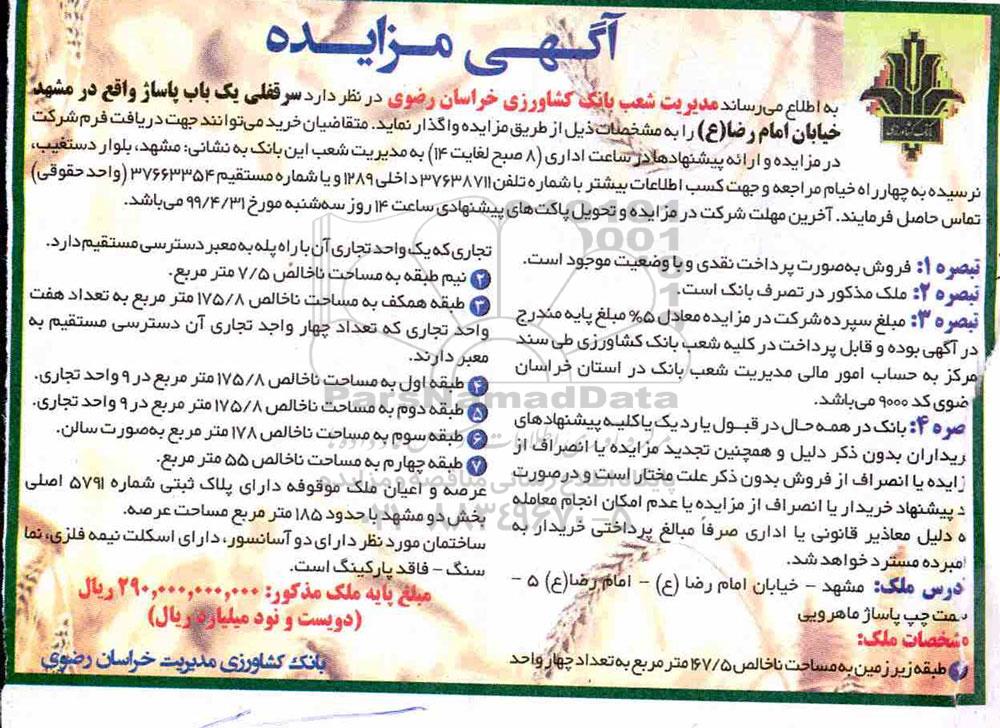 آگهی مزایده
بانک کشاورزی
به اطلاع می‌رساند مدیریت شعب بانک کشاورزی خراسان رضوی در نظر دارد سرقفلی یک باب پاساژ واقع در مشهد
خیابان امام رضا(ع) را به مشخصات ذیل از طریق مزایده واگذار نماید. متقاضیان خرید می‌توانند جهت دریافت فرم شرکت
در مزایده و ارائه پیشنهادها در ساعت اداری (۸ صبح لغایت ۱۴) به مدیریت شعب این بانک به نشانی: مشهد، بلوار دستغیب،
نرسیده به چهارراه خیام مراجعه و جهت کسب اطلاعات بیشتر با شماره تلفن ۳۷۶۳۸۷۱۱ داخلی ۱۲۸۹ و یا شماره مستقیم ۳۷۶۶۳۳۵۴ (واحد حقوقی)
تماس حاصل فرمایند. آخرین مهلت شرکت در مزایده و تحویل پاکت‌های پیشنهادی ساعت ۱۴ روز سه‌شنبه مورخ ۹۹/۴/۳۱ می‌باشد.
تبصره ۱: فروش به‌صورت پرداخت نقدی و با وضعیت موجود است.
تبصره ۲: ملک مذکور در تصرف بانک است.
تبصره ۳: مبلغ سپرده شرکت در مزایده معادل ۵% مبلغ پایه مندرج
در آگهی بوده و قابل پرداخت در کلیه شعب بانک کشاورزی طی سند
مرکز به حساب امور مالی مدیریت شعب بانک در استان خراسان
ضوی کد ۹۰۰۰ می‌باشد.
صره ۴: بانک در همه حال در قبول یا رد یک یا کلیه پیشنهادهای
ریداران بدون ذکر دلیل و همچنین تجدید مزایده یا انصراف از
زایده یا انصراف از فروش بدون ذکر علت مختار است و در صورت
د پیشنهاد خریدار یا انصراف از مزایده یا عدم امکان انجام معامله
ه دلیل معاذیر قانونی یا اداری صرفاً مبالغ پرداختی خریدار به
مبرده مسترد خواهد شد.
درس ملک: مشهد – خیابان امام رضا (ع) – امام رضا(ع) ۵ –
مت چپ پاساژ ماهرویی
شخصات ملک:
۱ طبقه زیرزمین به مساحت ناخالص ۱۶۷/۵ متر مربع به تعداد چهار واحد
تجاری که یک واحد تجاری آن با راه پله به معبر دسترسی مستقیم دارد.
۲ نیم طبقه به مساحت ناخالص ۷/۵ متر مربع.
۳ طبقه همکف به مساحت ناخالص ۱۷۵/۸ متر مربع به تعداد هفت
واحد تجاری که تعداد چهار واحد تجاری آن دسترسی مستقیم به
معبر دارند.
۴ طبقه اول به مساحت ناخالص ۱۷۵/۸ متر مربع در ۹ واحد تجاری.
۵ طبقه دوم به مساحت ناخالص ۱۷۵/۸ متر مربع در ۹ واحد تجاری.
۶ طبقه سوم به مساحت ناخالص ۱۷۸ متر مربع به‌صورت سالن.
۷ طبقه چهارم به مساحت ناخالص ۵۵ متر مربع.
عرصه و اعیان ملک موقوفه دارای پلاک ثبتی شماره ۵۷۹۱ اصلی
بخش دو مشهد با حدود ۱۸۵ متر مربع مساحت عرصه.
ساختمان مورد نظر دارای دو آسانسور، دارای اسکلت نیمه فلزی، نما
سنگ – فاقد پارکینگ است.
مبلغ پایه ملک مذکور: ۲۹۰,۰۰۰,۰۰۰,۰۰۰ ریال
(دویست و نود میلیارد ریال)
بانک کشاورزی مدیریت خراسان رضوی
ParsNamadData
پایگاه اطلاع رسانی مناقصه و مزایده
۰۲۱-۸۸۳۴۹۶۷۰-۵